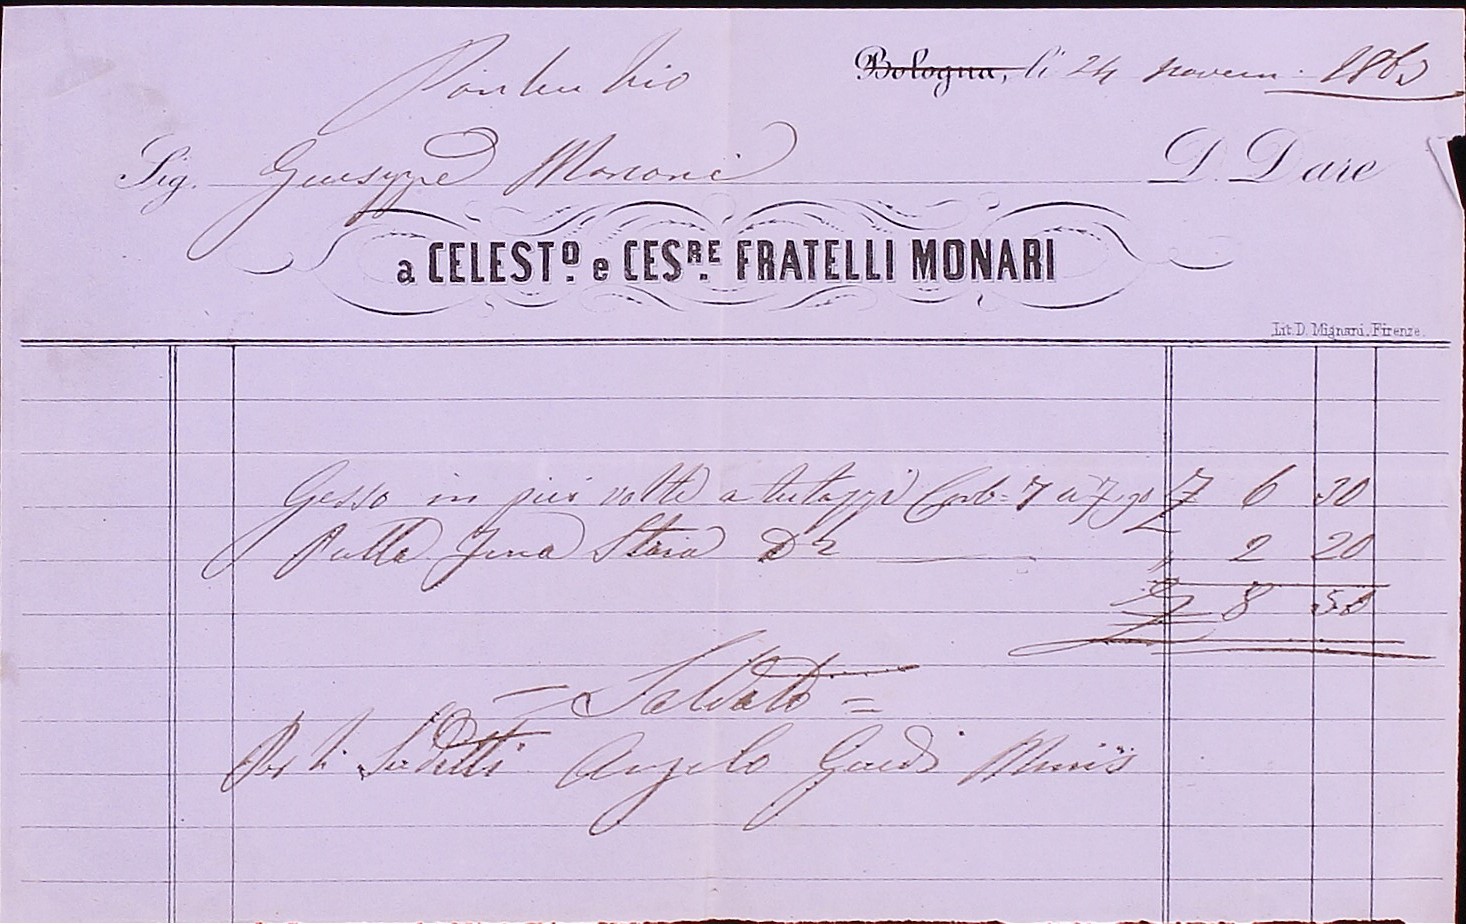 Bologna, li 24 novem. 1863
Sig. Giuseppe Marconi D. Dare
a CELESTO. e CESRE. FRATELLI MONARI
Lit. D. Mignani. Firenze.
Gesso in più volte a tutt'oggi Corb = 7 a 7 90 £ 6 30
Staia 2 " 2 20
£ 8 50
= Saldato =
Per li Sudetti Angelo